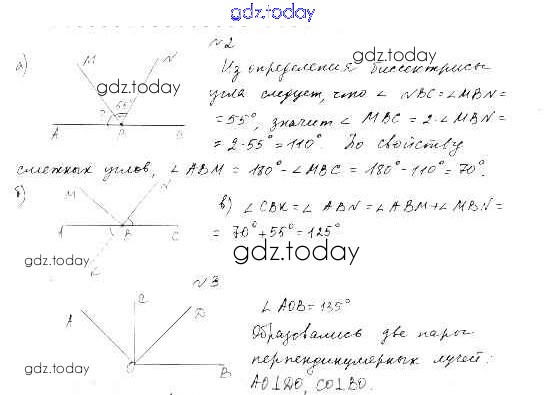 gdz.today
№2
а)
M
N
gdz.today
Из определения биссектрисы
gdz.today
?
55°
угла следует, что ∠ NBC = ∠ MBN =
A
B
= 55°, значит ∠ MBC = 2·∠ MBN =
= 2·55° = 110°. По свойству
смежных углов, ∠ ABM = 180° - ∠MBC = 180° - 110° = 70°.
б)
M
N
A
B
C
в) ∠ CBK = ∠ ABN = ∠ ABM + ∠ MBN =
= 70° + 55° = 125°
gdz.today
gdz.today
№3
A
C
D
O
B
∠ AOB = 135°
Образовались две пары
перпендикулярных лучей:
AO⊥DO, CO⊥BO.
gdz.today